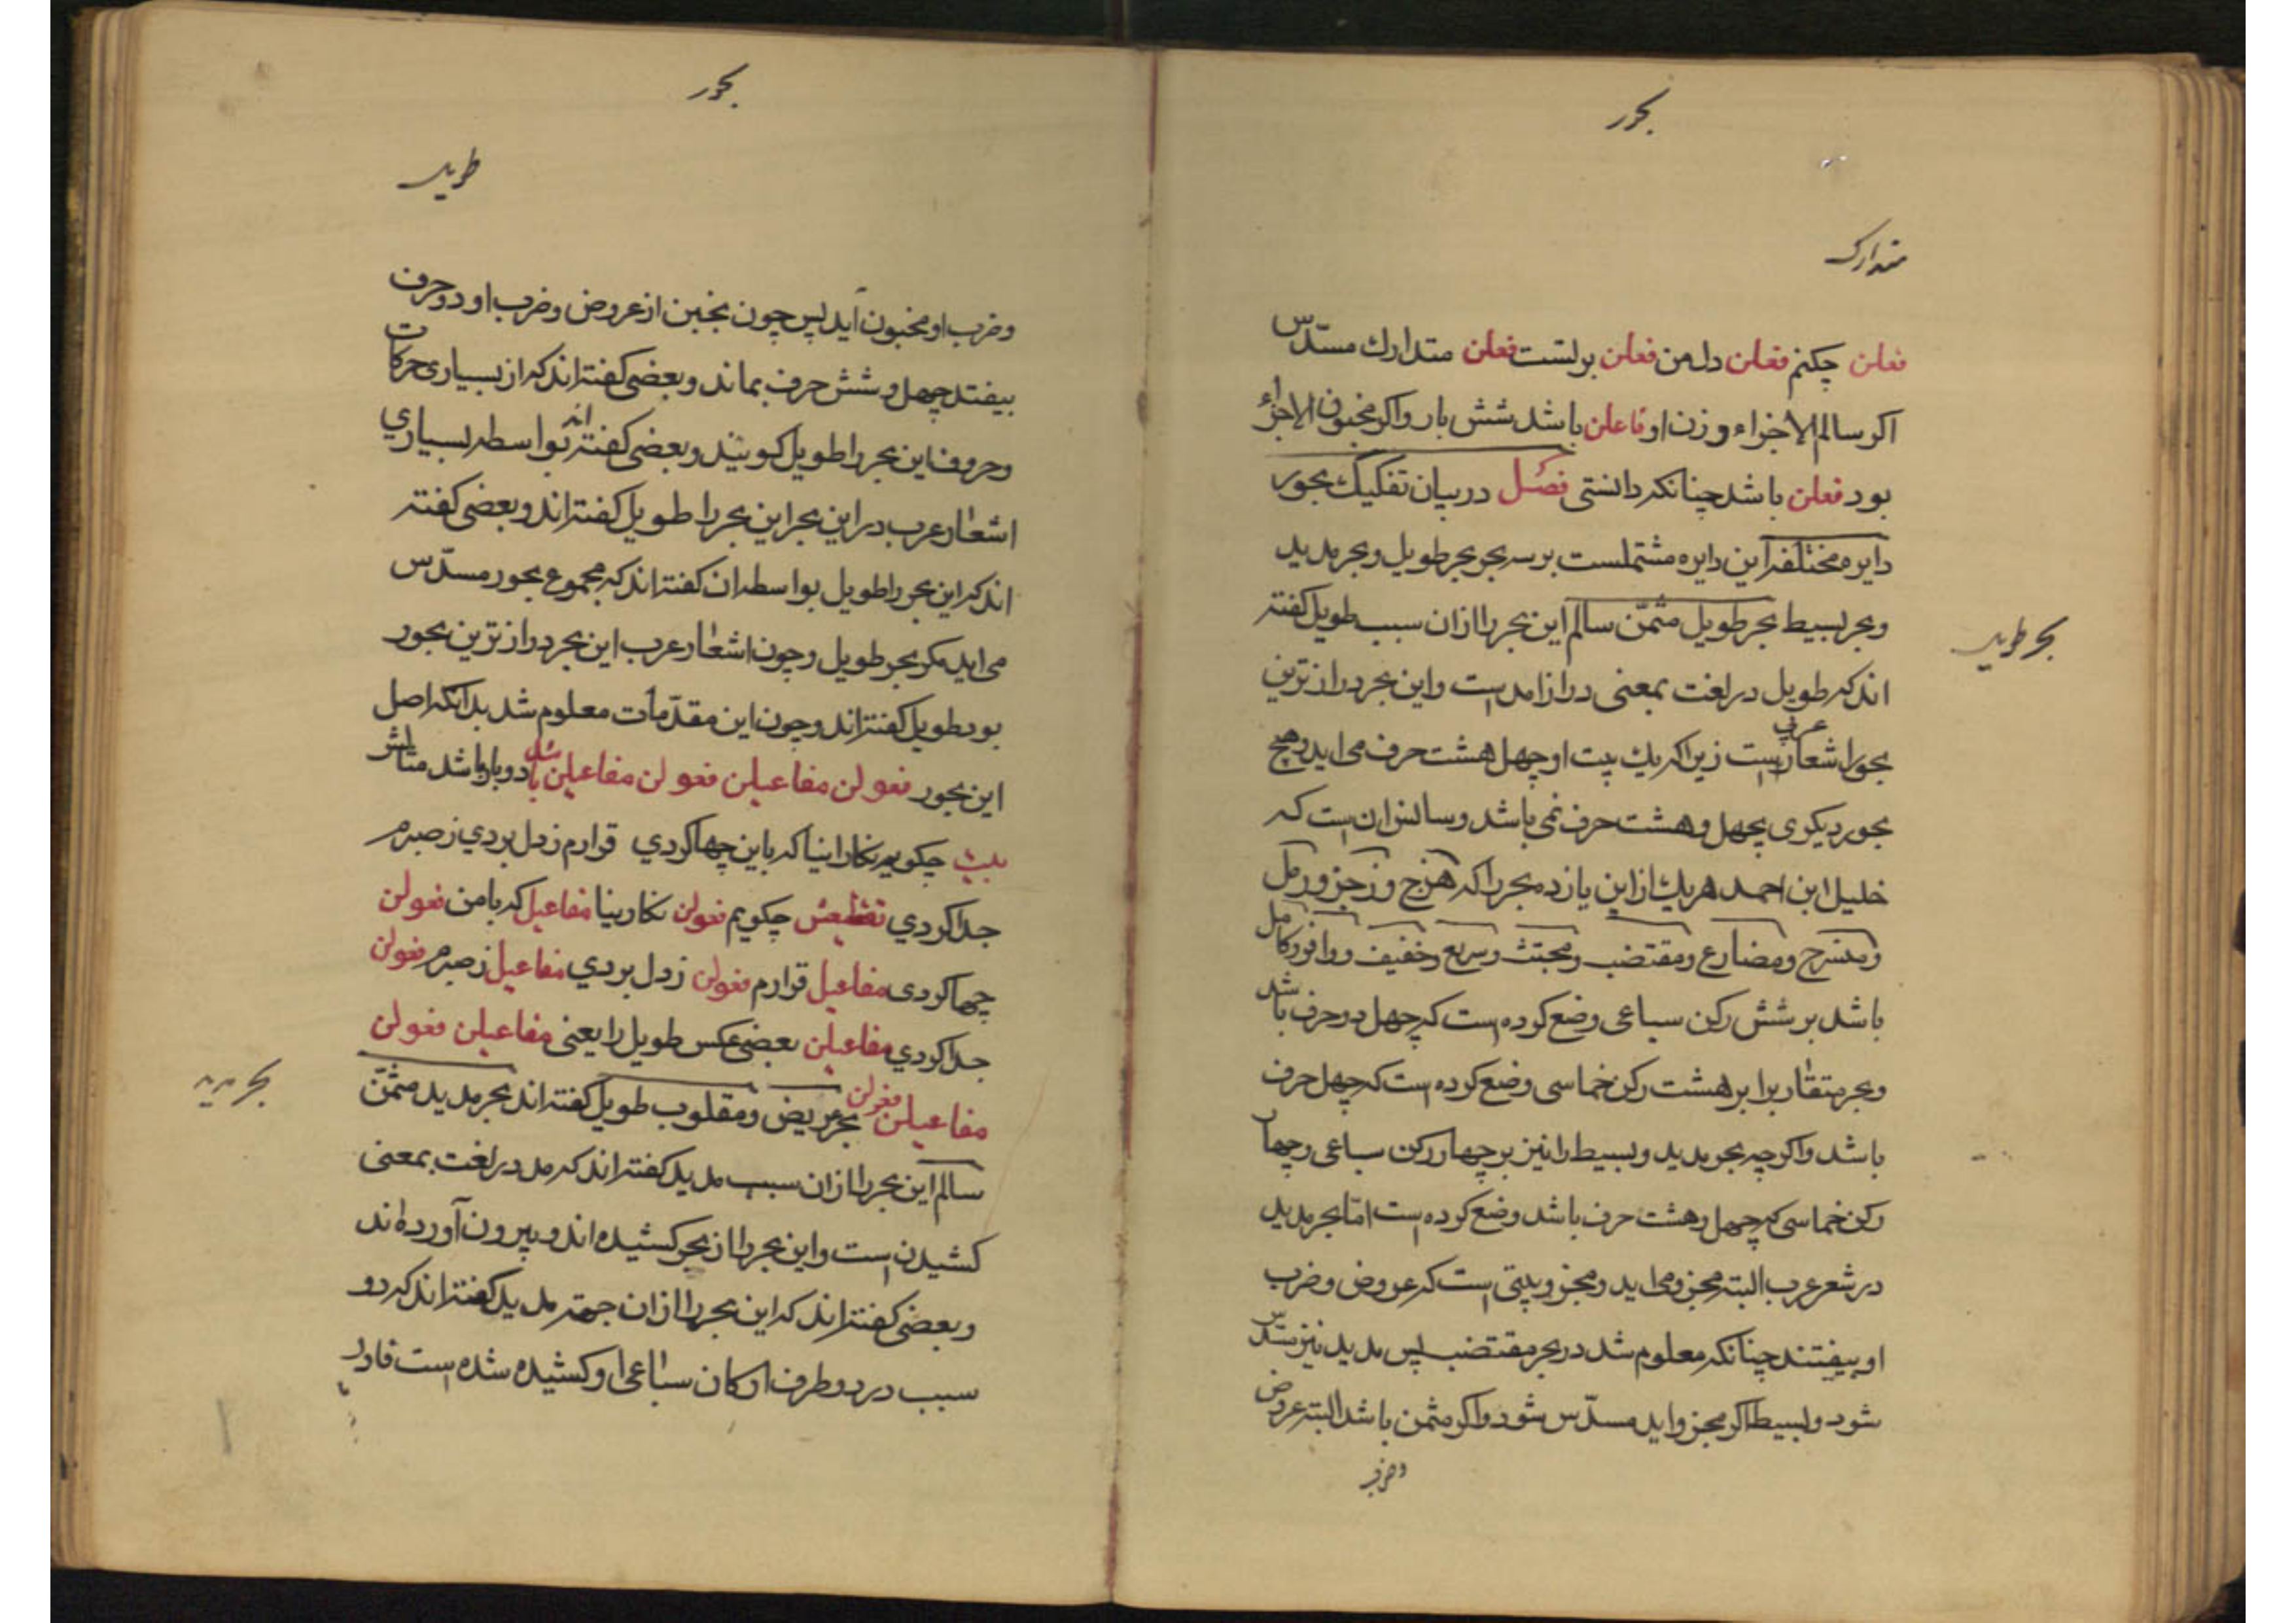 بحور
متدارک
فعلن چکنم فعلن دل من فعلن برتست فعلن متدارك مسدّس
اکر سالم الاجزاء وزن او فاعلن باشد شش بار واکر مخبون الاجزاء
بود فعلن باشد چنانکه دانستی فصل در بیان تفکیك بحور
دایره مختلفه این دایره مشتملست بر سه بحر بحر طویل و بحر مدید
و بحر بسیط بحر طویل مثمّن سالم این بحر را ازان سبب طویل کفته
بحر طویل
اند که طویل در لغت بمعنی دراز امده است واین بحر درازترین
بحور اشعار عرب است زیرا که یك بیت او چهل هشت حرف می اید وهیچ
بحور دیکری بچهل و هشت حرف نمی باشد و سالش ان است که
خلیل ابن احمد هریك از این یازده بحر را که هزج و رجز و رمل
و منسرح و مضارع و مقتضب و مجتث و سریع و خفیف و وافر و کامل
باشد بر شش رکن سباعی وضع کرده است که چهل دو حرف باشد
و بحر متقارب را بر هشت رکن خماسی وضع کرده است که چهل حرف
باشد واکرچه بحر مدید و بسیط را نیز بر چهار رکن سباعی و چهار
رکن خماسی که چهل و هشت حرف باشد وضع کرده است امّا بحر مدید
در شعر عرب البته مجزو می اید و مجزو بیتی است که عروض و ضرب
او بیفتند چنانکه معلوم شد در بحر مقتضب پس مدید نیز مسدّس
شود و بسیط اکر مجزو اید مسدّس شود واکر مثمن باشد البته عروض
وضرب
بحور
طویل
وضرب او مخبون آید پس چون بخبن از عروض وضرب او دو حرف
بیفتد چهل و شش حرف بماند و بعضی کفته اند که از بسیاری حرکات
و حروف این بحر را طویل کویند و بعضی کفته اند بواسطه بسیاري
اشعار عرب در این بحر این بحر را طویل کفته اند و بعضی کفته
اند که این بحر را طویل بواسطه ان کفته اند که مجموع بحور مسدّس
می اید مکر بحر طویل و چون اشعار عرب این بحر درازترین بحور
بود طویل کفته اند و چون این مقدّمات معلوم شد بدانکه اصل
این بحور فعولن مفاعیلن فعولن مفاعیلن باشد دو بار باشد مثالش
بیت چکویم نکارینا که با من چها کردي قرارم ز دل بردي ز صبرم
جدا کردي تقطیعش چکویم فعولن نکارینا مفاعیل که با من فعولن
چها کردی مفاعیل قرارم فعولن ز دل بردي مفاعیل ز صبرم فعولن
جدا کردي مفاعیلن بعضی عکس طویل را یعنی مفاعیلن فعولن
مفاعیلن فعولن بحر عریض و مقلوب طویل کفته اند بحر مدید مثمّن
بحر مدید
سالم این بحر را ازان سبب مدید کفته اند که مد در لغت بمعنی
کشیدن است واین بحر را از بحر کشیده اند و بیرون آورده اند
و بعضی کفته اند که این بحر را ازان جهته مدید کفته اند که دو
سبب در دو طرف ارکان سباعی او کشیده شده است